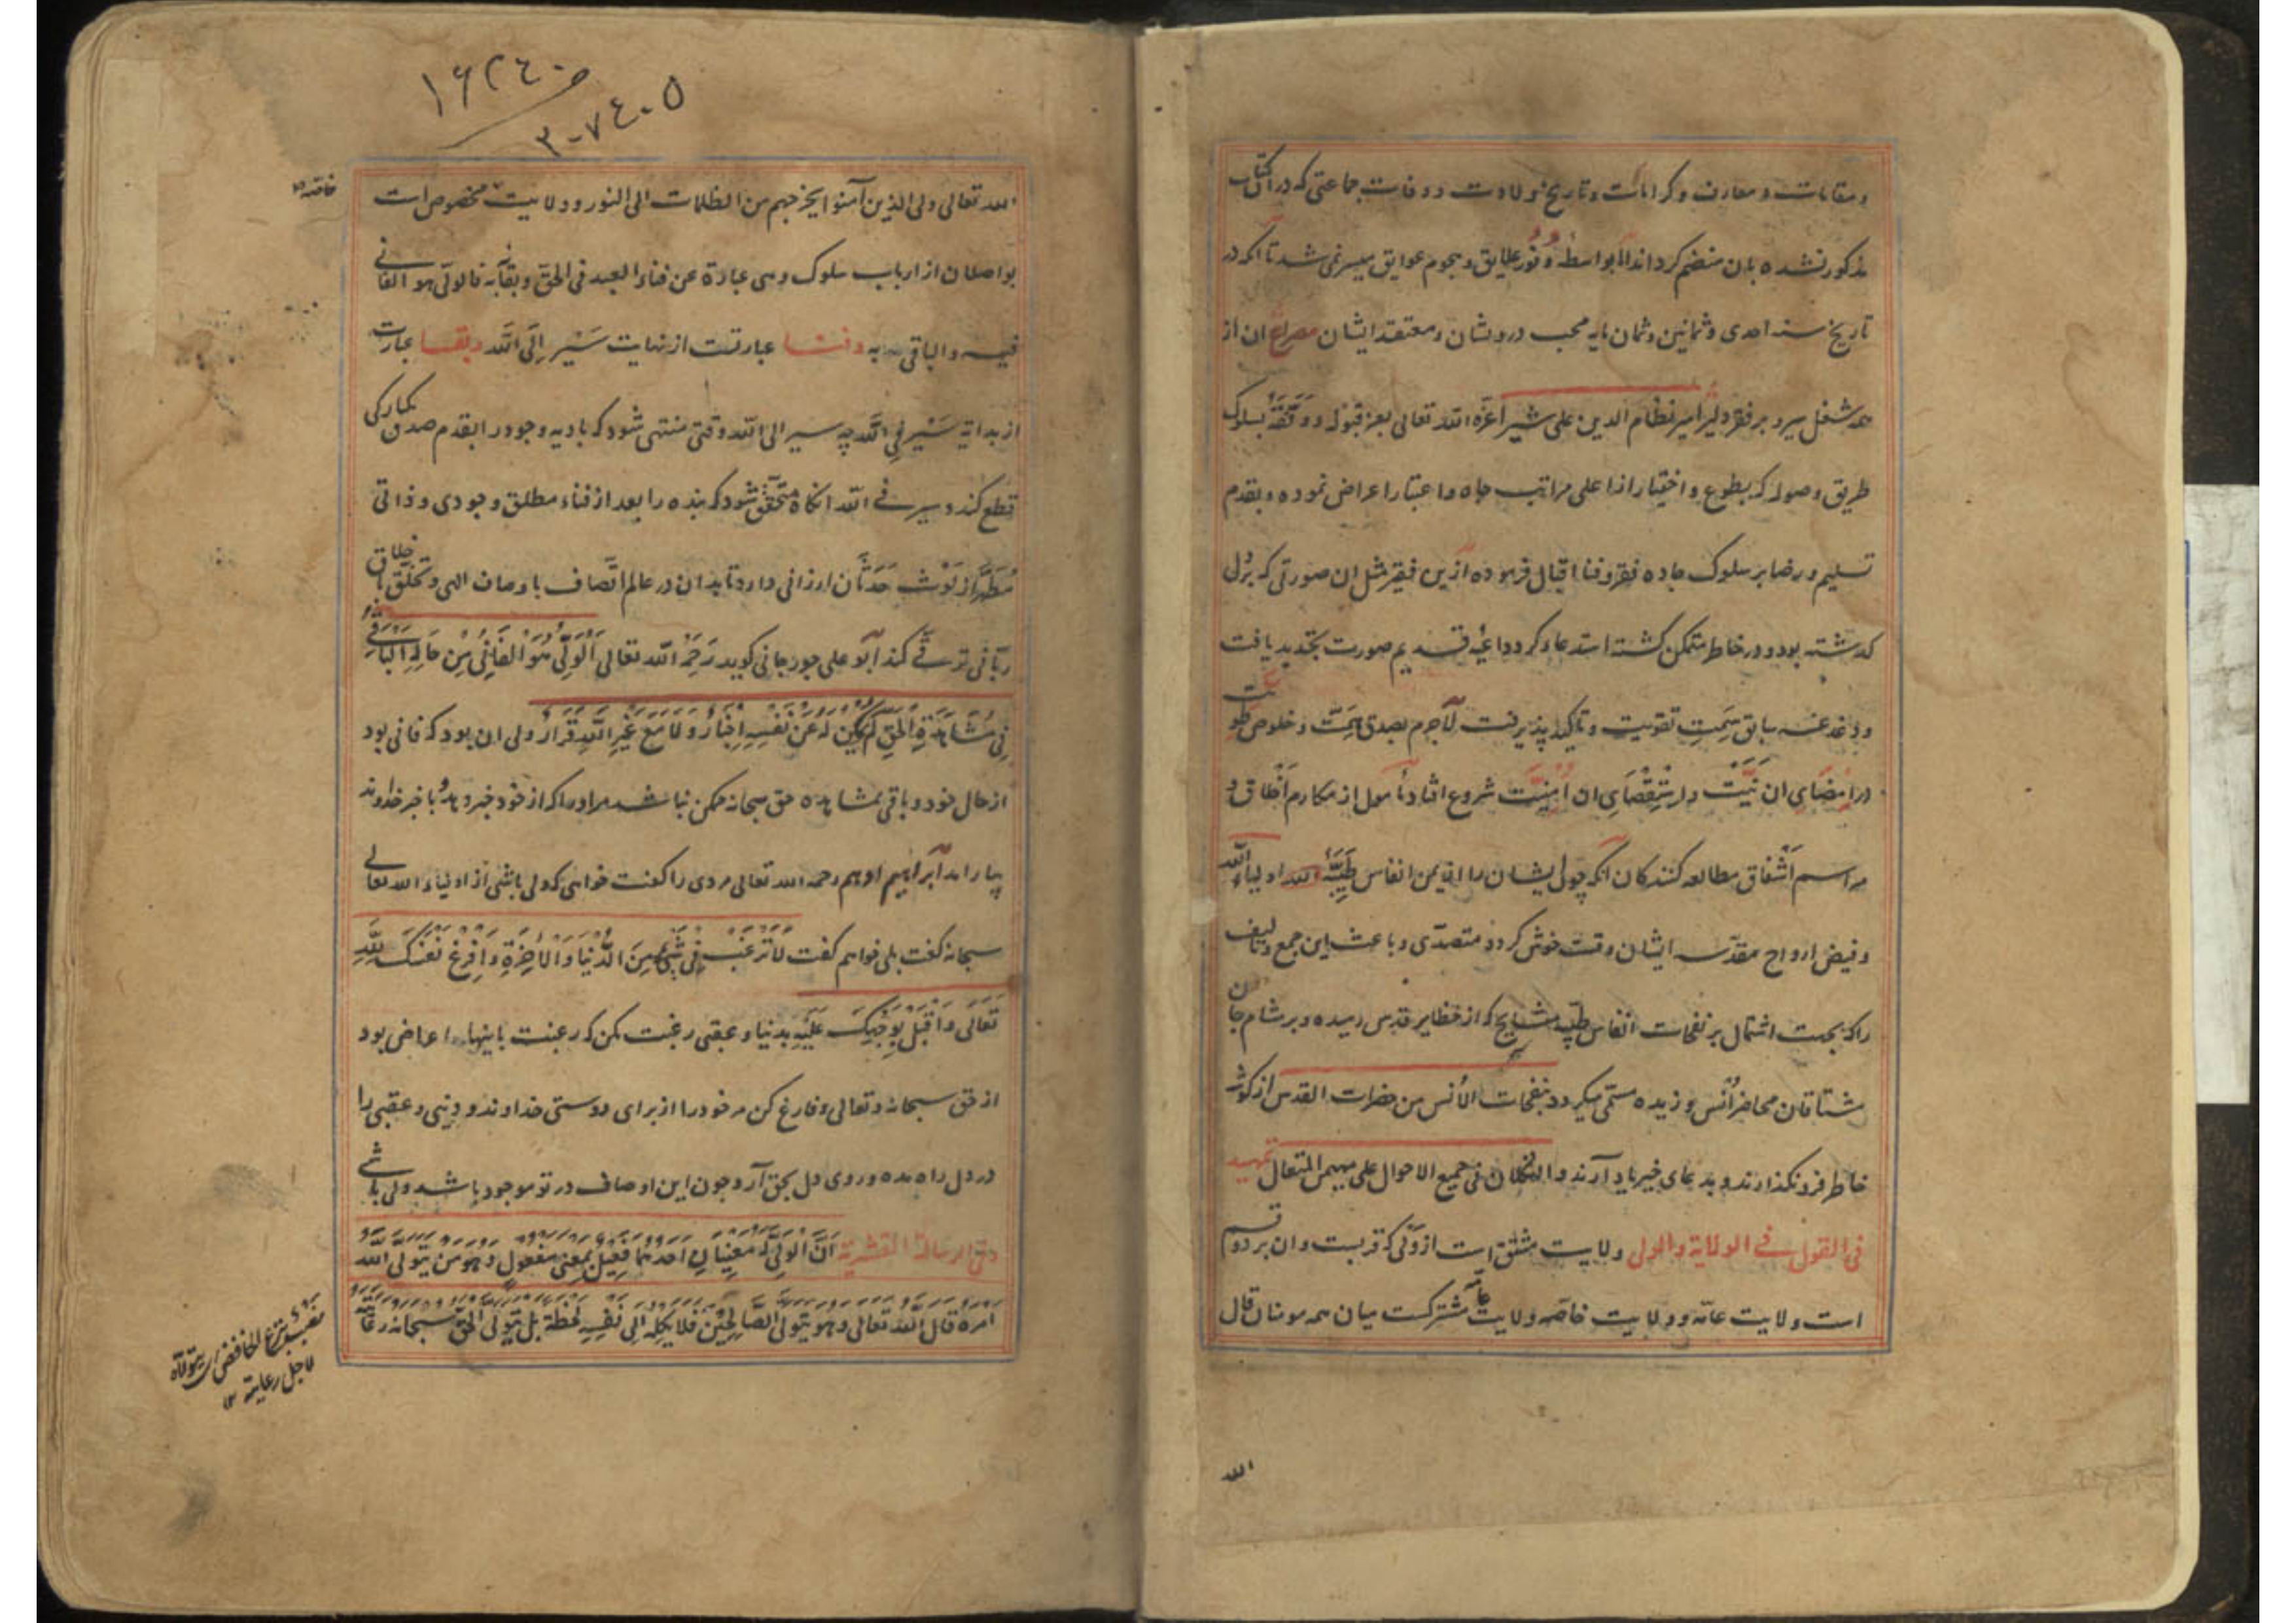 و مقامات و معارف و کرامات و تاریخ ولادت و وفات جماعتی که در ان کتاب
مذکور نشده بان منضم کرداند اما بواسطه وفور علایق و هجوم عوایق میسر نمی شد تا انکه در
تاریخ سنه احدی و ثمانین و ثمان مایه محب درویشان و معتقد ایشان مصراع ان از
همه شغل سیر و بر فقر دلیر امیر نظام الدین علی شیر اعزه الله تعالی بعز قبوله و وفقه بسلوک
طریق وصوله که بطوع و اختیار از اعلی مراتب جاه و اعتبار اعراض نموده و بقدم
تسلیم و رضا بر سلوک جاده فقر و فنا اقبال فرموده ازین فقیر مثل ان صورتی که بر دل
کدشته بود و در خاطر متمکن کشته استدعا کرد و داعیه قدیم صورت تجدید یافت
و دغدغه سابق سمت تقویت و تاکید پذیرفت لاجرم بصدق همت و خلوص طویت
در امضای ان نیت و استقصای ان امنیت شروع افتاد مامول از مکارم اخلاق و
مراسم اشفاق مطالعه کنندکان انکه چون ایشان را از یمن انفاس طیبه اولیاء الله
و فیض ارواح مقدسه ایشان وقت خوش کردد متصدی و باعث این جمع و تالیف
را که بجهت اشتمال بر نفحات انفاس طیبه مشایخ که از حظایر قدس رسیده و بر مشام جان
مشتاقان محاضر انس وزیده مسمی میکردد بنفحات الانس من حضرات القدس از کوشه
خاطر فرو نکذارند و بدعای خیر یاد آرند و التکلان فی جمیع الاحوال علی المهیمن المتعال تمهید
فی القول فی الولایة والولی ولایت مشتق است از ولی که قربست و ان بر دو قسم
است ولایت عامه و ولایت خاصه ولایت عامه مشترکست میان همه مومنان قال
الله
۱۶۲۴۰
۳۰۷۴۰۵
الله تعالی ولی الذین آمنوا یخرجهم من الظلمات الی النور و ولایت مخصوص است
خاصه
بواصلان از ارباب سلوک و هی عبارة عن فناء العبد فی الحق و بقآئه فالولی هو الفانی
فیه والباقی به و فنا عبارتست از نهایت سَیْر اِلَی اللّه و بقا عبارت
از بدایة سَیْر فِی اللّه چه سیر الی الله وقتی منتهی شود که بادیه وجود را بقدم صدق یکبارکی
قطع کند و سیر فی الله انکاه متحقق شود که بنده را بعد از فناء مطلق وجودی و ذاتی
مُطَهَّر از لوث حَدَثان ارزانی دارد تا بدان در عالم اتصاف باوصاف الهی و تخلق باخلاق
ربانی ترقی کند ابو علی جورجانی کوید رَحِمَهُ الله تعالی اَلْوَلِیُّ هُوَ الْفَانِیْ مِنْ حَالِهِ الْبَاقِیْ
فِیْ مُشَاهَدَةِ الْحَقِّ لَمْ یَکُنْ لَهُ عَنْ نَفْسِهِ اِخْبَارٌ وَلَا مَعَ غَیْرِ اللّهِ قَرَارٌ ولی ان بود که فانی بود
از حال خود و باقی بمشاهده حق سبحانه ممکن نباشد مر او را که از خود خبر دهد و با جز خداوند
بیاراند ابراهیم ادهم رحمه الله تعالی مردی را کفت خواهی که ولی باشی از اولیاء الله تعالی
سبحانه کفت بلی خواهم کفت لَا تَرْغَبْ فِیْ شَیْءٍ مِنَ الدُّنْیَا وَالْآخِرَةِ وَافْرِغْ نَفْسَکَ لِلّهِ
تَعَالَی وَاَقْبِلْ بِوَجْهِکَ عَلَیْهِ بدنیا و عقبی رغبت مکن که رغبت باینها اعراض بود
از حق سبحانه و تعالی و فارغ کن مر خود را از برای دوستی خداوند و دنیی و عقبی را
در دل راه مده و روی دل بحق آر و چون این اوصاف در تو موجود باشد ولی باشی
و فی الرسالة القشیریة اَنَّ الْوَلِیَّ لَهُ مَعْنَیَانِ احدهما فَعِیْلٌ بِمَعْنَی مَفْعُوْلٍ وَهُوَ مَنْ یَتَوَلَّی اللّهُ
اَمْرَهُ قَالَ اللّهُ تَعَالَی وَهُوَ یَتَوَلَّی الصَّالِحِیْنَ فَلَا یَکِلُهُ اِلَی نَفْسِهِ لَحْظَةً بَلْ یَتَوَلَّی الْحَقُّ سُبْحَانَهُ رِعَایَتَهُ
بنزع الخافض ای یتولاه
لاجل رعایته ۱۲